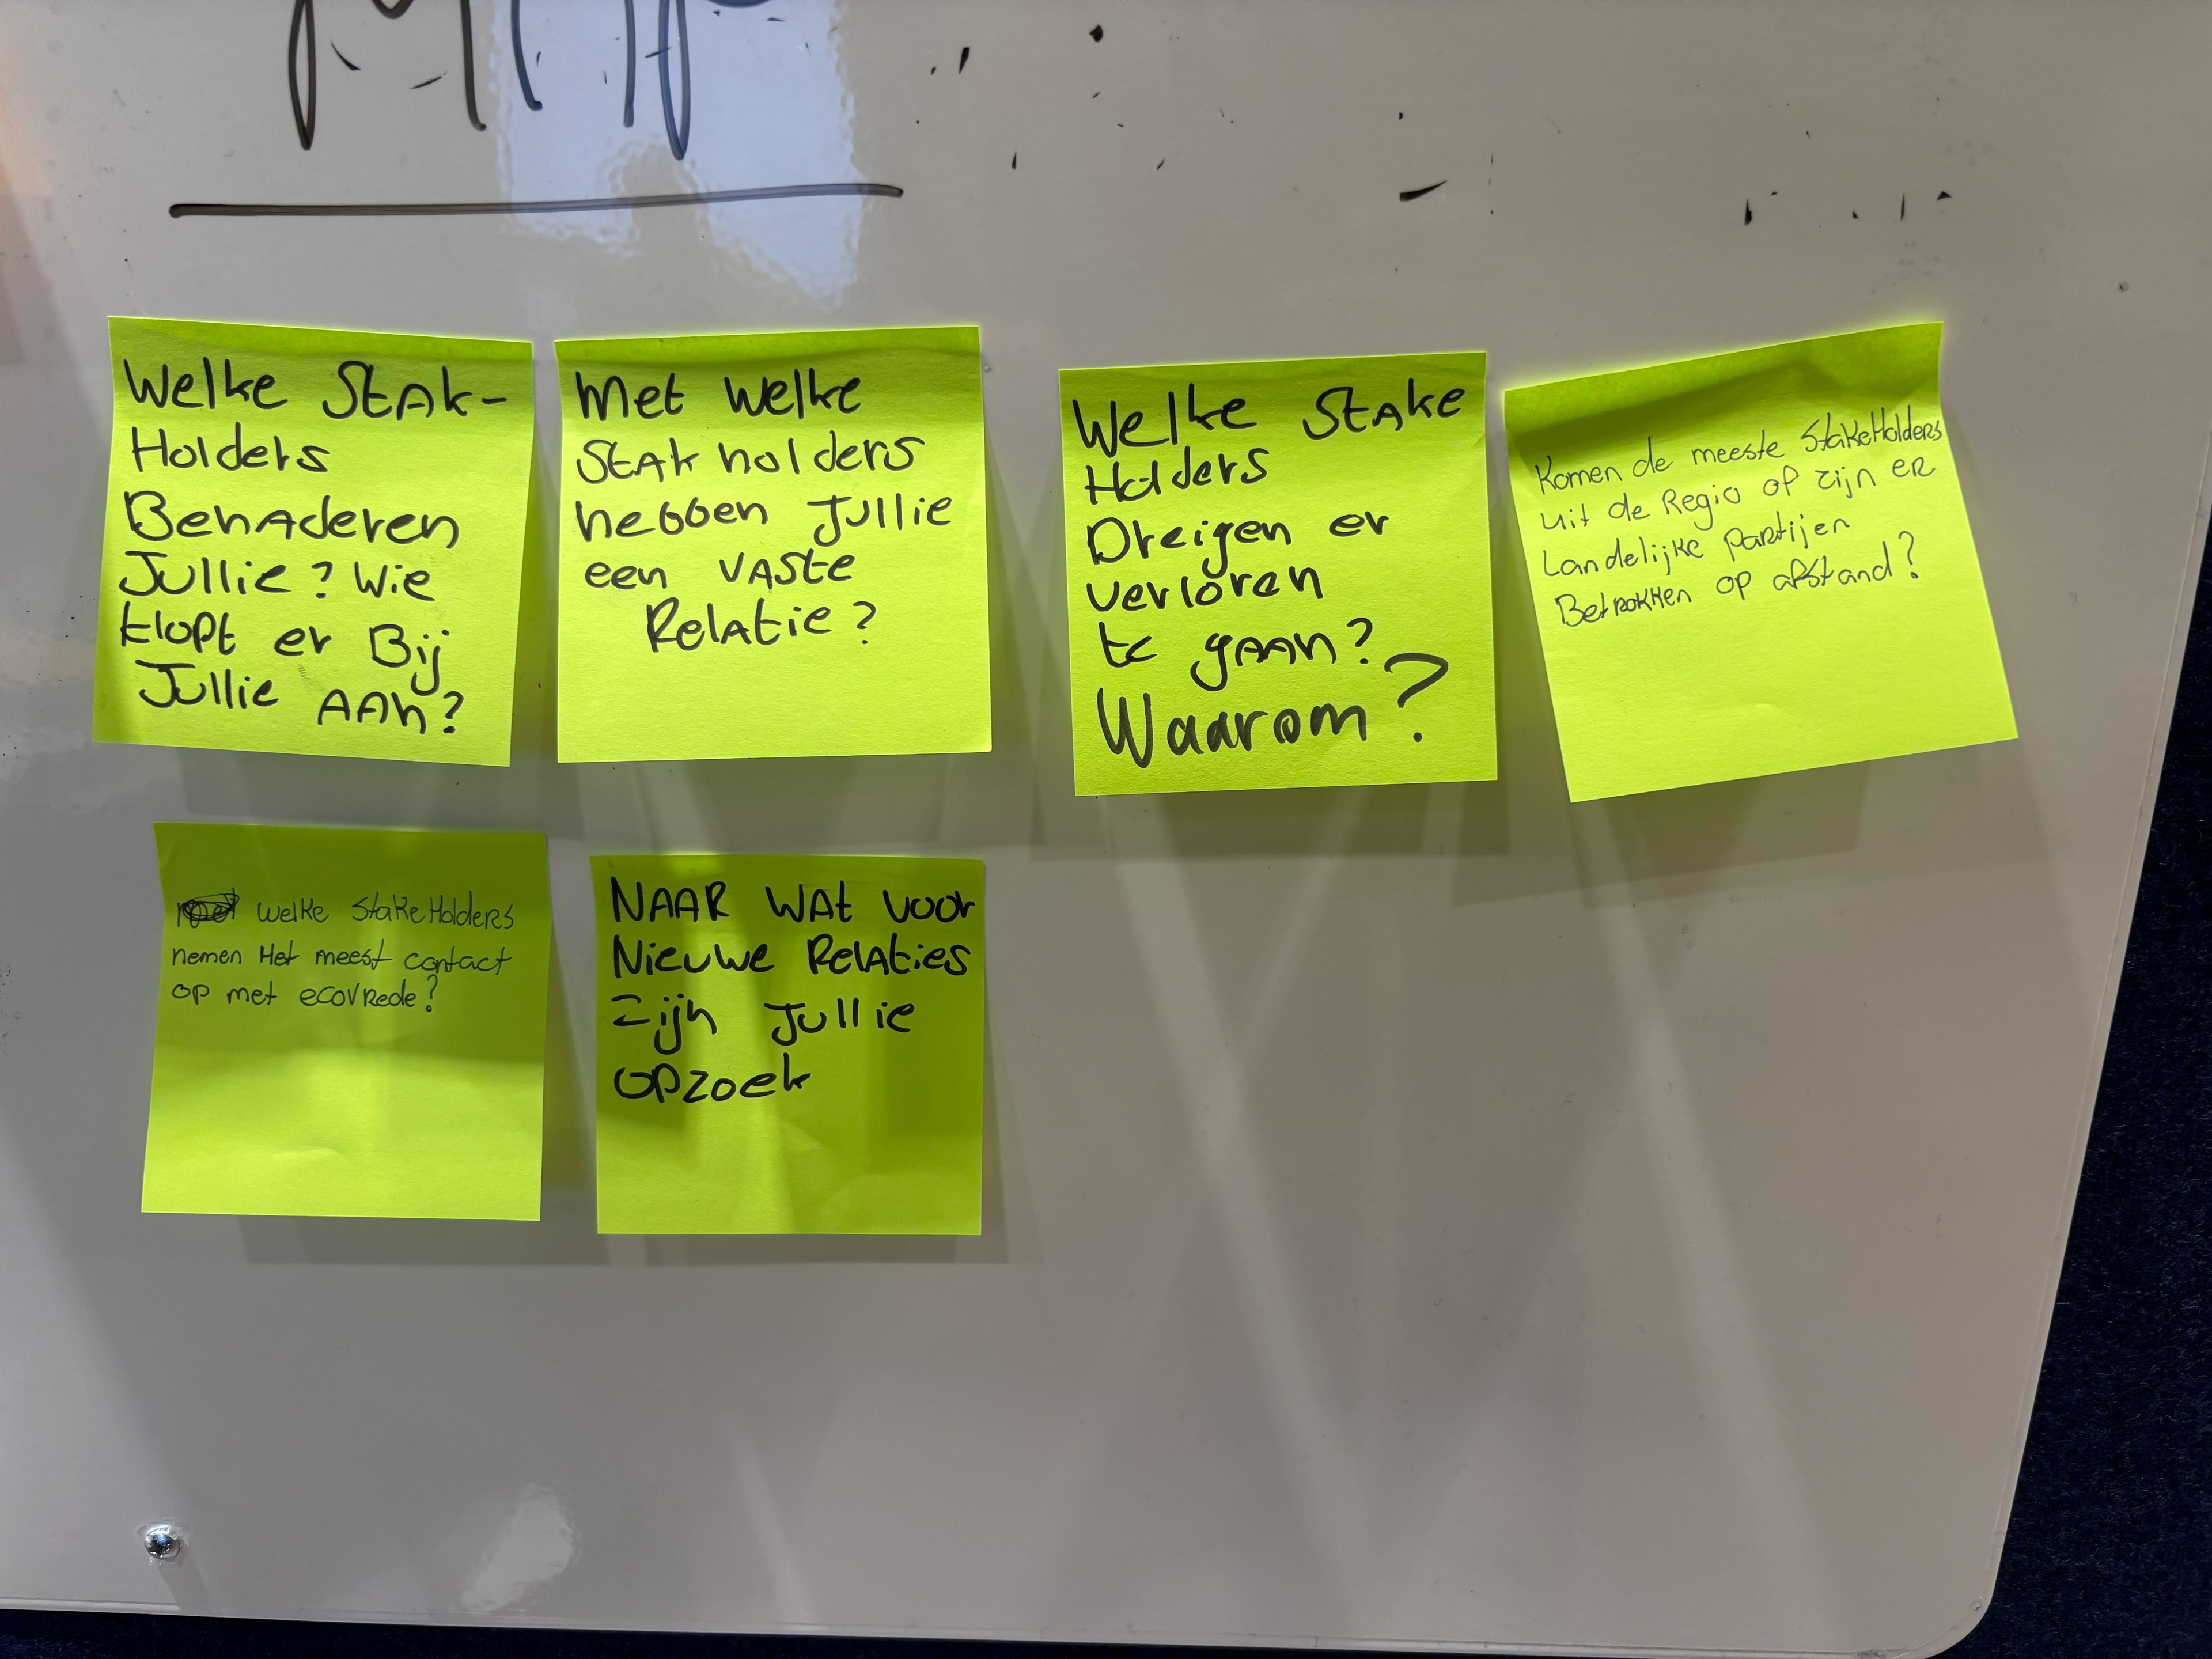 Welke StAk-
Holders
BenAderen
Jullie? Wie
klopt er Bij
Jullie AAn?
Met welke
StAkholders
hebben Jullie
een VASte
RelAtie?
Welke StAke
Holders
Dreigen er
verloren
te gAAn?
Waarom?
Komen de meeste StakeHolders
uit de Regio of zijn er
Landelijke partijen
Betrokken op afstand?
welke StakeHolders
nemen Het meest contact
op met ecovRede?
NAAR WAt voor
Nieuwe RelAties
Zijn Jullie
opzoek